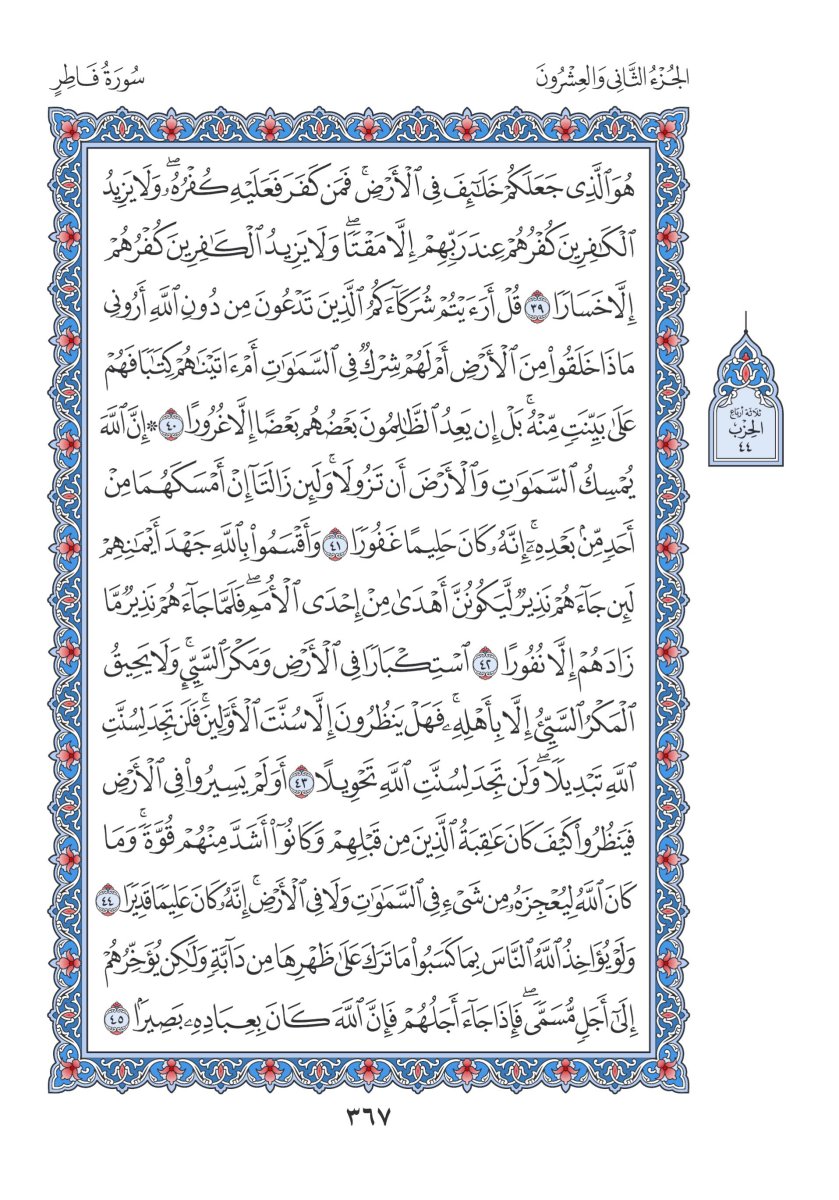 الجُزْءُ الثَّانِي وَالعِشْرُونَ
سُورَةُ فَاطِرٍ
هُوَ ٱلَّذِى جَعَلَكُمْ خَلَـٰٓئِفَ فِى ٱلْأَرْضِۚ فَمَن كَفَرَ فَعَلَيْهِ كُفْرُهُۥۖ وَلَا يَزِيدُ
ٱلْكَـٰفِرِينَ كُفْرُهُمْ عِندَ رَبِّهِمْ إِلَّا مَقْتًاۖ وَلَا يَزِيدُ ٱلْكَـٰفِرِينَ كُفْرُهُمْ
إِلَّا خَسَارًا ٣٩ قُلْ أَرَءَيْتُمْ شُرَكَآءَكُمُ ٱلَّذِينَ تَدْعُونَ مِن دُونِ ٱللَّهِ أَرُونِى
مَاذَا خَلَقُوا۟ مِنَ ٱلْأَرْضِ أَمْ لَهُمْ شِرْكٌ فِى ٱلسَّمَـٰوَٰتِ أَمْ ءَاتَيْنَـٰهُمْ كِتَـٰبًا فَهُمْ
عَلَىٰ بَيِّنَتٍ مِّنْهُۚ بَلْ إِن يَعِدُ ٱلظَّـٰلِمُونَ بَعْضُهُم بَعْضًا إِلَّا غُرُورًا ٤٠ ۞ إِنَّ ٱللَّهَ
يُمْسِكُ ٱلسَّمَـٰوَٰتِ وَٱلْأَرْضَ أَن تَزُولَاۚ وَلَئِن زَالَتَآ إِنْ أَمْسَكَهُمَا مِنْ
أَحَدٍ مِّنۢ بَعْدِهِۦٓۚ إِنَّهُۥ كَانَ حَلِيمًا غَفُورًا ٤١ وَأَقْسَمُوا۟ بِٱللَّهِ جَهْدَ أَيْمَـٰنِهِمْ
لَئِن جَآءَهُمْ نَذِيرٌ لَّيَكُونُنَّ أَهْدَىٰ مِنْ إِحْدَى ٱلْأُمَمِۖ فَلَمَّا جَآءَهُمْ نَذِيرٌ مَّا
زَادَهُمْ إِلَّا نُفُورًا ٤٢ ٱسْتِكْبَارًا فِى ٱلْأَرْضِ وَمَكْرَ ٱلسَّيِّئِۚ وَلَا يَحِيقُ
ٱلْمَكْرُ ٱلسَّيِّئُ إِلَّا بِأَهْلِهِۦۚ فَهَلْ يَنظُرُونَ إِلَّا سُنَّتَ ٱلْأَوَّلِينَۚ فَلَن تَجِدَ لِسُنَّتِ
ٱللَّهِ تَبْدِيلًاۖ وَلَن تَجِدَ لِسُنَّتِ ٱللَّهِ تَحْوِيلًا ٤٣ أَوَلَمْ يَسِيرُوا۟ فِى ٱلْأَرْضِ
فَيَنظُرُوا۟ كَيْفَ كَانَ عَـٰقِبَةُ ٱلَّذِينَ مِن قَبْلِهِمْ وَكَانُوٓا۟ أَشَدَّ مِنْهُمْ قُوَّةًۚ وَمَا
كَانَ ٱللَّهُ لِيُعْجِزَهُۥ مِن شَىْءٍ فِى ٱلسَّمَـٰوَٰتِ وَلَا فِى ٱلْأَرْضِۚ إِنَّهُۥ كَانَ عَلِيمًا قَدِيرًا ٤٤
وَلَوْ يُؤَاخِذُ ٱللَّهُ ٱلنَّاسَ بِمَا كَسَبُوا۟ مَا تَرَكَ عَلَىٰ ظَهْرِهَا مِن دَآبَّةٍ وَلَـٰكِن يُؤَخِّرُهُمْ
إِلَىٰٓ أَجَلٍ مُّسَمًّىۖ فَإِذَا جَآءَ أَجَلُهُمْ فَإِنَّ ٱللَّهَ كَانَ بِعِبَادِهِۦ بَصِيرًۢا ٤٥
ثلاثة أرباع
الحِزْب
٤٤
٣٦٧